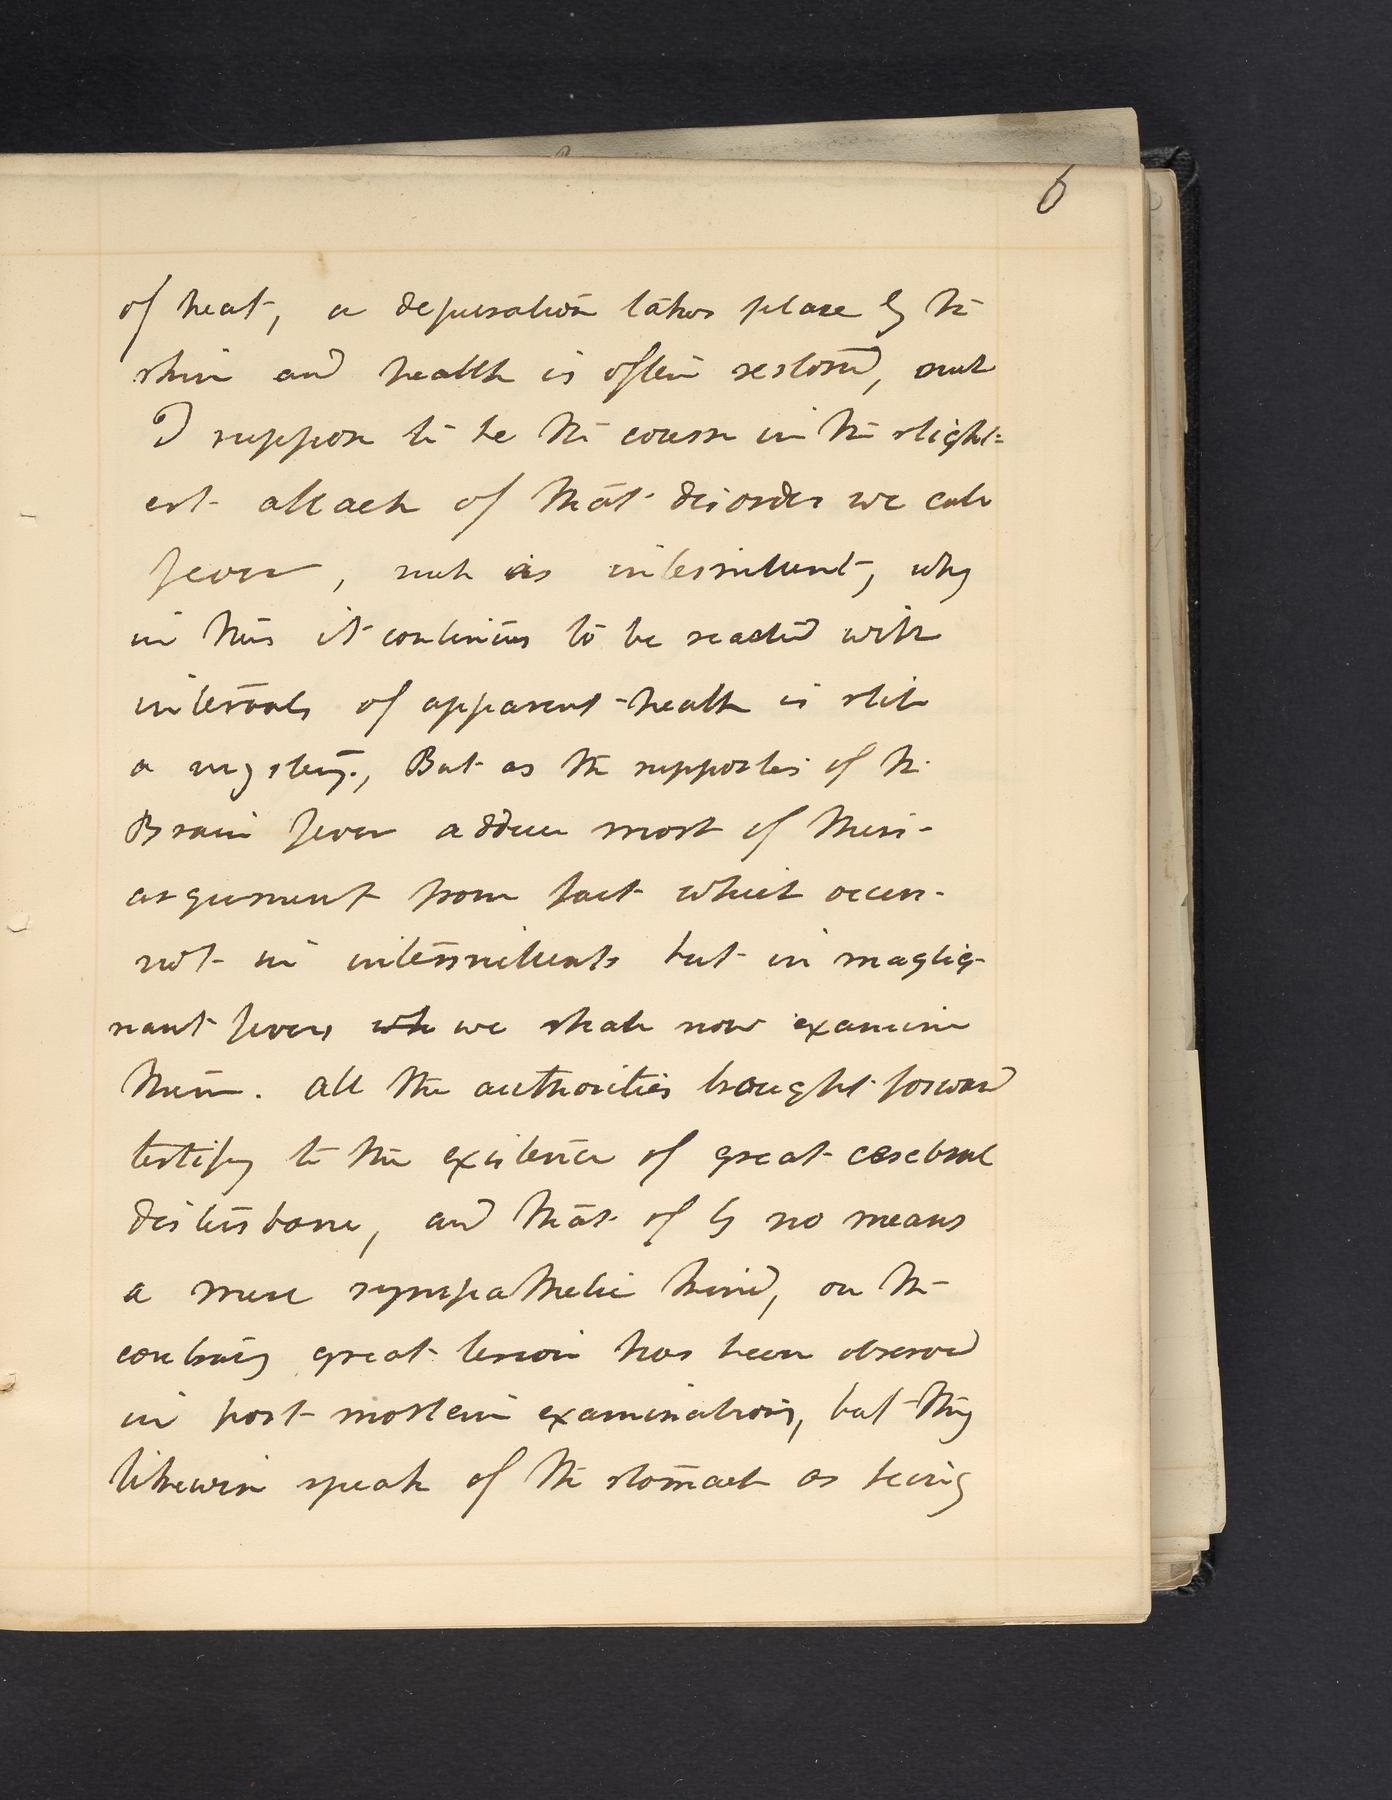 6
of heat, a depuration takes place by the
skin and health is often restored, such
I suppose to be the course in the slight=
est attack of that disorder we call
fever, such as intermittent, why
in this it continues to be reacted with
intervals of apparent health is still
a mystery., But as the supporters of the
Brain fever adduce most of their
argument from fact which occur
not in intermittents but in maglig-
nant fevers wh we shall now examine
them. all the authorities brought forward
testify to the existence of great cerebral
disturbance, and that of by no means
a mere sympathetic kind, on the
contrary great lesion has been observed
in post mortem examinations, but they
likewise speak of the stomach as being